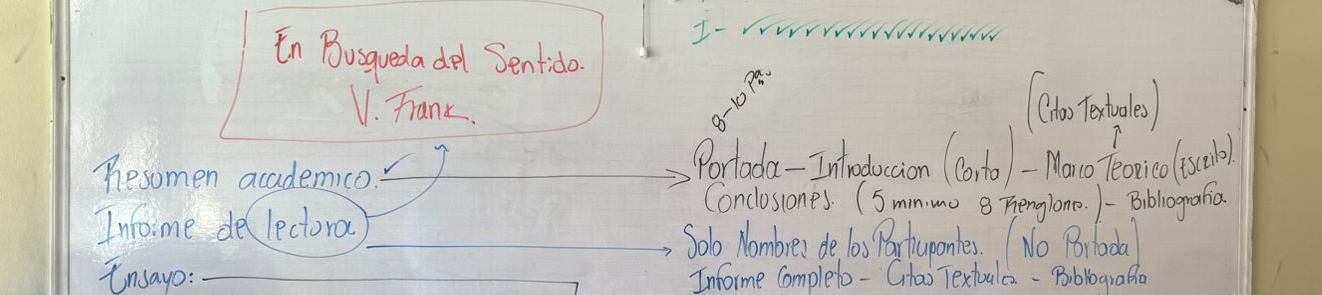 En Busqueda del Sentido.
V. Frank.
I-
8-10 Pag.
(Citas Textuales)
Resumen academico.
Portada - Introduccion (Corto) - Marco Teorico (Escrito).
Conclusiones. (5 minimo 8 Renglons.) - Bibliografia.
Informe de lectora
Solo Nombres de los Participantes. (No Portada)
Informe Completo - Citas Textuales - Bibliografia
Ensayo: